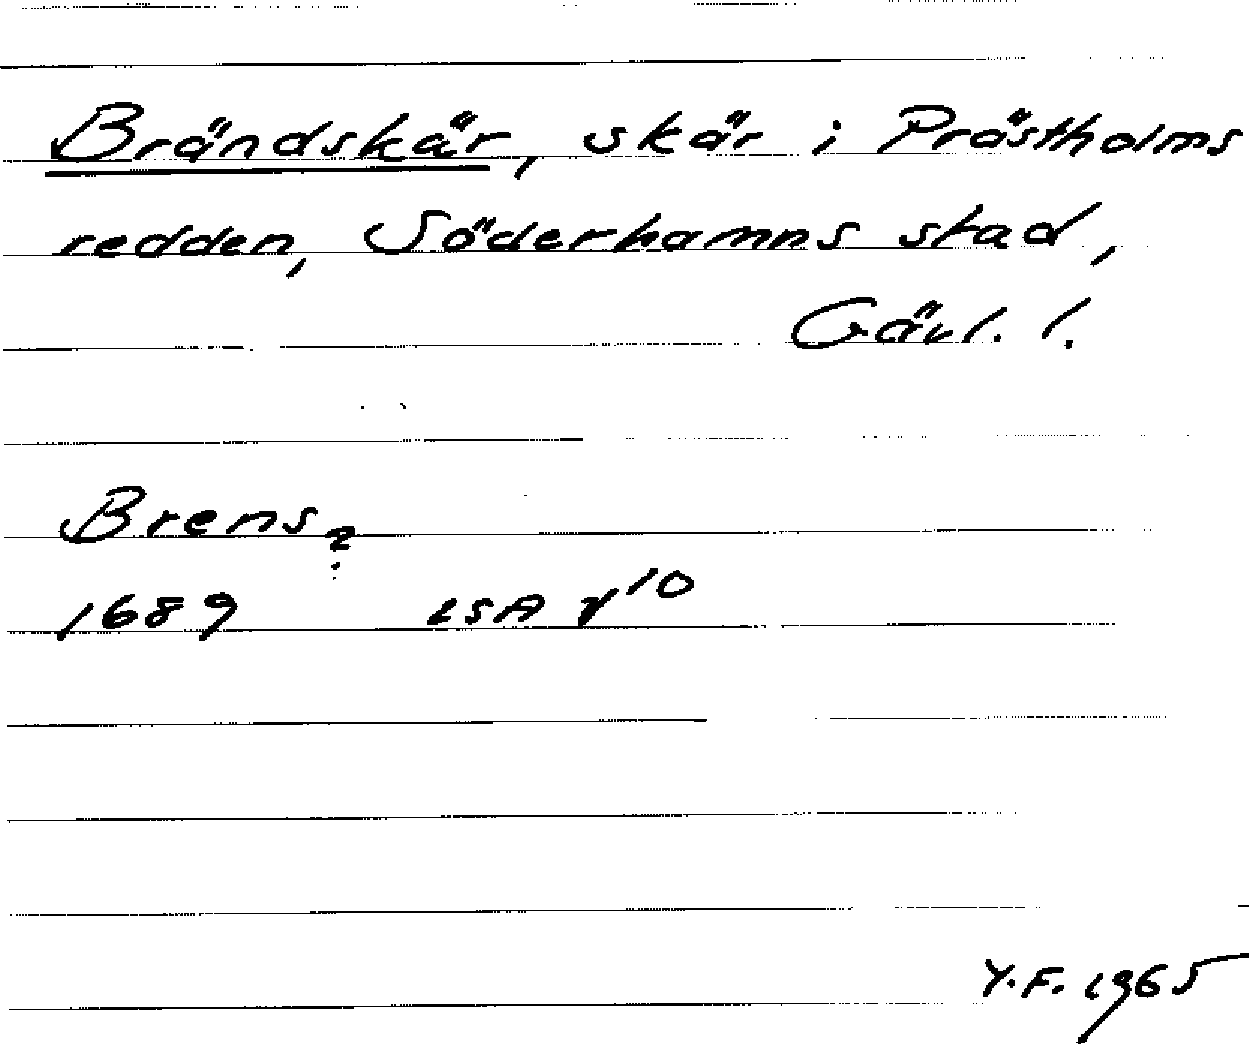 Brändskär, skär i Prästholms
redden, Söderhamns stad,
Gävl. l.
Brens?
1689 LSA γ10
Y.F. 1965